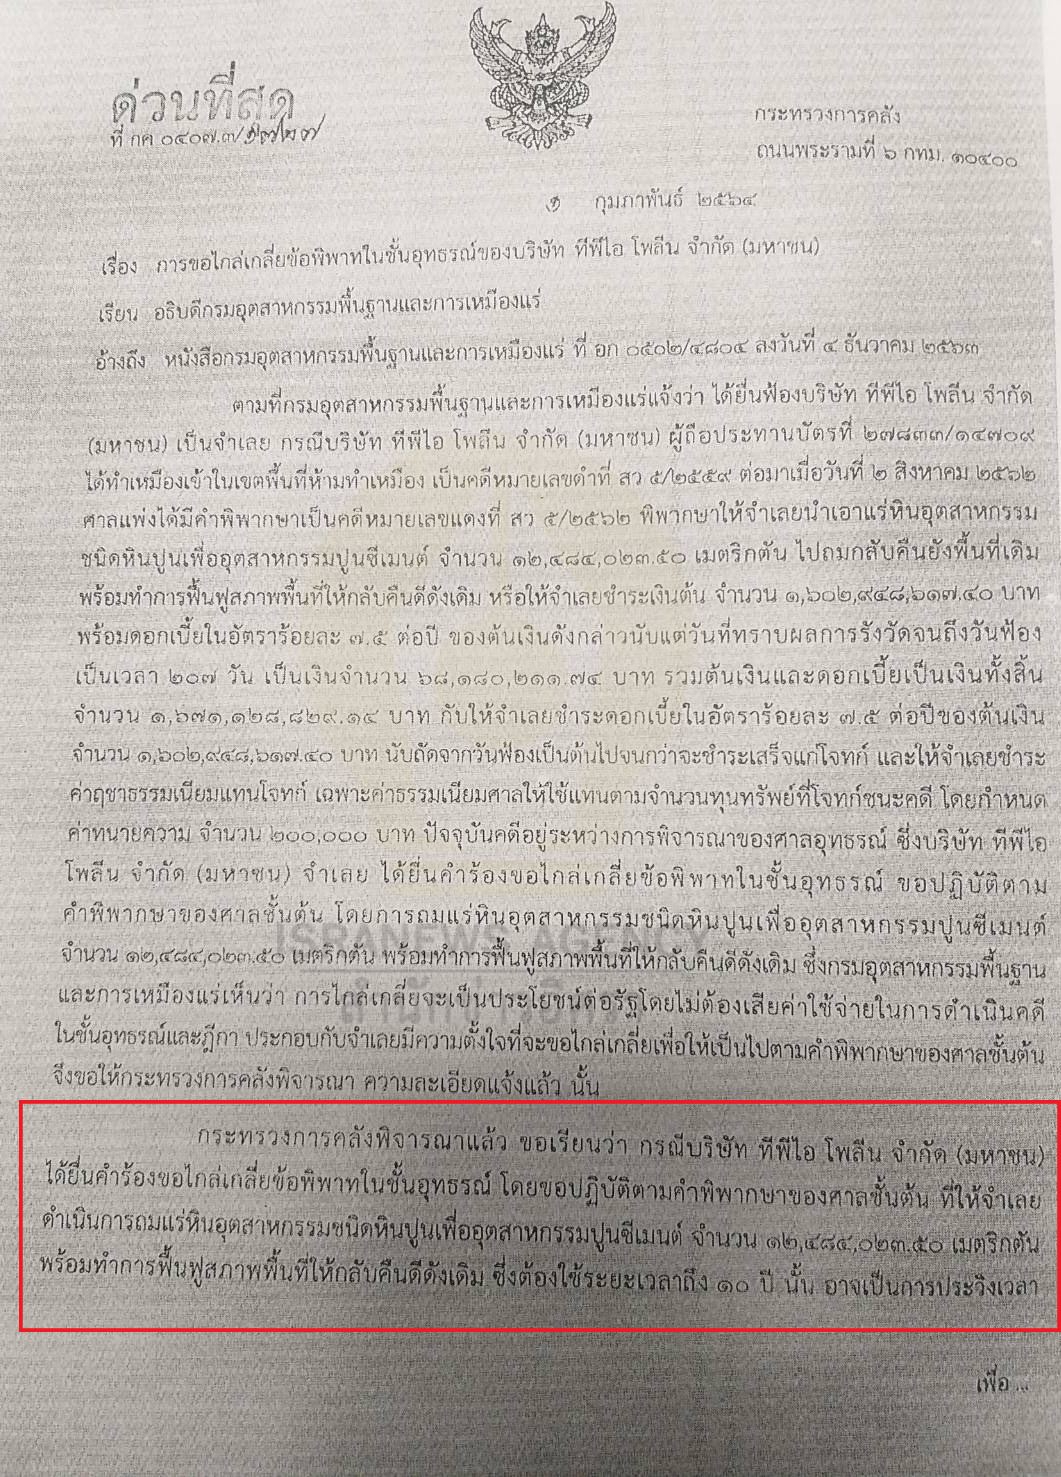 ด่วนที่สุด
ที่ กค ๐๔๐๗.๓/
กระทรวงการคลัง
ถนนพระรามที่ ๖ กทม. ๑๐๔๐๐
กุมภาพันธ์ ๒๕๖๔
เรื่อง การขอไกล่เกลี่ยข้อพิพาทในชั้นอุทธรณ์ของบริษัท ทีพีไอ โพลีน จำกัด (มหาชน)
เรียน อธิบดีกรมอุตสาหกรรมพื้นฐานและการเหมืองแร่
อ้างถึง หนังสือกรมอุตสาหกรรมพื้นฐานและการเหมืองแร่ ที่ อก ๐๕๐๒/๔๘๐๔ ลงวันที่ ๔ ธันวาคม ๒๕๖๓
ตามที่กรมอุตสาหกรรมพื้นฐานและการเหมืองแร่แจ้งว่า ได้ยื่นฟ้องบริษัท ทีพีไอ โพลีน จำกัด
(มหาชน) เป็นจำเลย กรณีบริษัท ทีพีไอ โพลีน จำกัด (มหาชน) ผู้ถือประทานบัตรที่ ๒๗๘๓๓/๑๔๗๐๙
ได้ทำเหมืองเข้าในเขตพื้นที่ห้ามทำเหมือง เป็นคดีหมายเลขดำที่ สว ๕/๒๕๕๙ ต่อมาเมื่อวันที่ ๒ สิงหาคม ๒๕๖๒
ศาลแพ่งได้มีคำพิพากษาเป็นคดีหมายเลขแดงที่ สว ๕/๒๕๖๒ พิพากษาให้จำเลยนำเอาแร่หินอุตสาหกรรม
ชนิดหินปูนเพื่ออุตสาหกรรมปูนซีเมนต์ จำนวน ๑๒,๔๘๔,๐๒๓.๕๐ เมตริกตัน ไปถมกลับคืนยังพื้นที่เดิม
พร้อมทำการฟื้นฟูสภาพพื้นที่ให้กลับคืนดีดังเดิม หรือให้จำเลยชำระเงินต้น จำนวน ๑,๖๐๒,๙๔๘,๖๑๗.๔๐ บาท
พร้อมดอกเบี้ยในอัตราร้อยละ ๗.๕ ต่อปี ของต้นเงินดังกล่าวนับแต่วันที่ทราบผลการรังวัดจนถึงวันฟ้อง
เป็นเวลา ๒๐๗ วัน เป็นเงินจำนวน ๖๘,๑๘๐,๒๑๑.๗๔ บาท รวมต้นเงินและดอกเบี้ยเป็นเงินทั้งสิ้น
จำนวน ๑,๖๗๑,๑๒๘,๘๒๙.๑๔ บาท กับให้จำเลยชำระดอกเบี้ยในอัตราร้อยละ ๗.๕ ต่อปีของต้นเงิน
จำนวน ๑,๖๐๒,๙๔๘,๖๑๗.๔๐ บาท นับถัดจากวันฟ้องเป็นต้นไปจนกว่าจะชำระเสร็จแก่โจทก์ และให้จำเลยชำระ
ค่าฤชาธรรมเนียมแทนโจทก์ เฉพาะค่าธรรมเนียมศาลให้ใช้แทนตามจำนวนทุนทรัพย์ที่โจทก์ชนะคดี โดยกำหนด
ค่าทนายความ จำนวน ๒๐๐,๐๐๐ บาท ปัจจุบันคดีอยู่ระหว่างการพิจารณาของศาลอุทธรณ์ ซึ่งบริษัท ทีพีไอ
โพลีน จำกัด (มหาชน) จำเลย ได้ยื่นคำร้องขอไกล่เกลี่ยข้อพิพาทในชั้นอุทธรณ์ ขอปฏิบัติตาม
คำพิพากษาของศาลชั้นต้น โดยการถมแร่หินอุตสาหกรรมชนิดหินปูนเพื่ออุตสาหกรรมปูนซีเมนต์
จำนวน ๑๒,๔๘๔,๐๒๓.๕๐ เมตริกตัน พร้อมทำการฟื้นฟูสภาพพื้นที่ให้กลับคืนดีดังเดิม ซึ่งกรมอุตสาหกรรมพื้นฐาน
และการเหมืองแร่เห็นว่า การไกล่เกลี่ยจะเป็นประโยชน์ต่อรัฐโดยไม่ต้องเสียค่าใช้จ่ายในการดำเนินคดี
ในชั้นอุทธรณ์และฎีกา ประกอบกับจำเลยมีความตั้งใจที่จะขอไกล่เกลี่ยเพื่อให้เป็นไปตามคำพิพากษาของศาลชั้นต้น
จึงขอให้กระทรวงการคลังพิจารณา ความละเอียดแจ้งแล้ว นั้น
กระทรวงการคลังพิจารณาแล้ว ขอเรียนว่า กรณีบริษัท ทีพีไอ โพลีน จำกัด (มหาชน)
ได้ยื่นคำร้องขอไกล่เกลี่ยข้อพิพาทในชั้นอุทธรณ์ โดยขอปฏิบัติตามคำพิพากษาของศาลชั้นต้น ที่ให้จำเลย
ดำเนินการถมแร่หินอุตสาหกรรมชนิดหินปูนเพื่ออุตสาหกรรมปูนซีเมนต์ จำนวน ๑๒,๔๘๔,๐๒๓.๕๐ เมตริกตัน
พร้อมทำการฟื้นฟูสภาพพื้นที่ให้กลับคืนดีดังเดิม ซึ่งต้องใช้ระยะเวลาถึง ๑๐ ปี นั้น อาจเป็นการประวิงเวลา
เพื่อ ...
ISRANEWS AGENCY